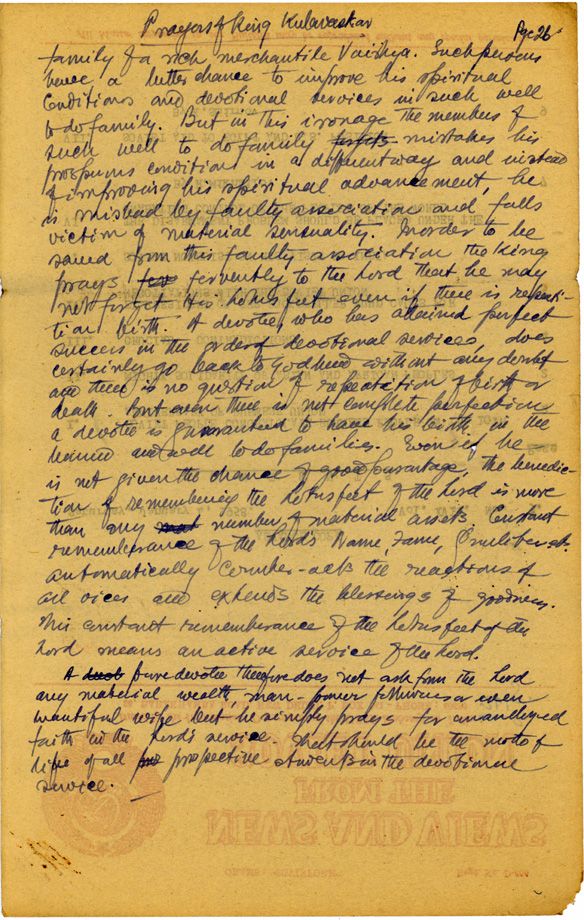 Prayers of King Kulasekhar
Page 26
family of a rich merchantile Vaishya. Such persons
hence a better chance to improve his spiritual
conditions and devotional services in such well
to do family. But in this iron age the members of
such well to do family mistakes his
prosperous condition in a different way and instead
of improving his spiritual advancement, he
is mislead by faulty association and falls
victim of material sensuality. Inorder to be
saved from this faulty association the King
prays fervently to the Lord that he may
not forget His lotus feet even if there is repeti-
tion birth. A devotee, who has attained perfect
success in the order of devotional services, does
certainly go back to Godhead without any doubt
and there is no question of repeatation of birth or
death. But even there is not complete perfection
a devotee is guaranteed to have his birth in the
learned and well to do families. Even if he
is not given the chance of good parantage, the benedic-
tion of remembering the lotus feet of the Lord is more
than any number of material assets. Constant
rememberance of the Lords Name, fame, Qualities etc.
automatically counter-acts the reactions of
all vices and extends the blessings of goodness.
This constant rememberance of the lotus feet of the
Lord means an active service of the Lord.
A pure devotee therefore does not ask from the Lord
any material wealth, man-power followers or even
beautiful wife but he simply prays for unanloyed
faith in the Lord's service. That should be the motto of
life of all prospective students in the devotional
service.
FROM THE
NEWS AND VIEWS